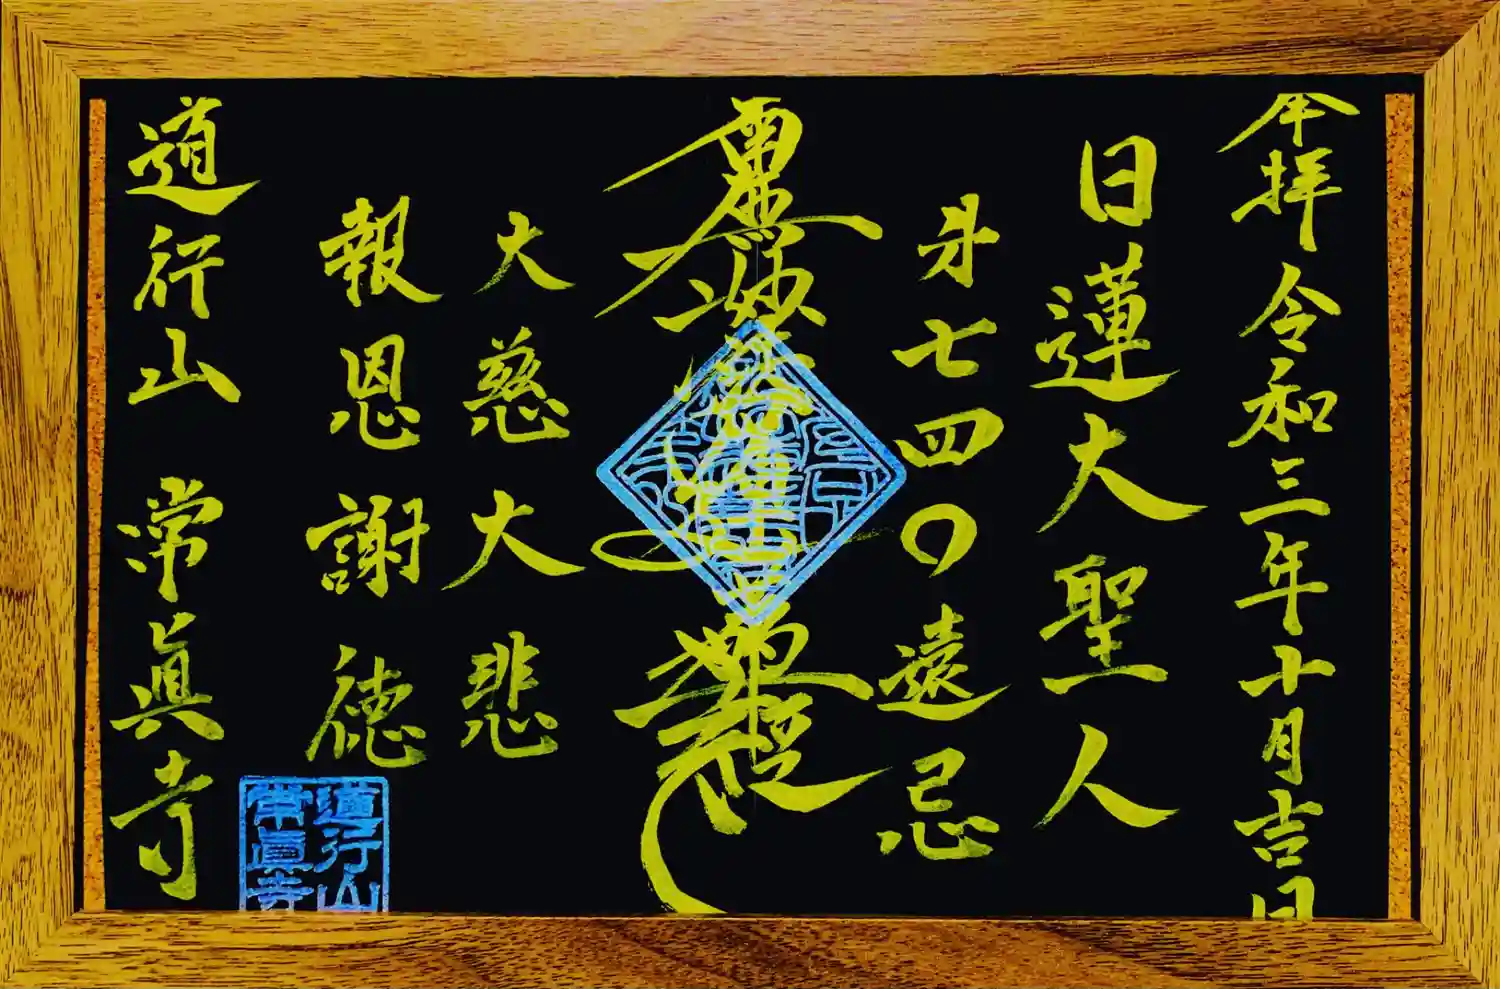 奉拝 令和三年十月吉日
日蓮大聖人
第七四〇遠忌
南無妙法蓮華経
大慈大悲
報恩謝徳
道行山 常眞寺
道行山
常眞寺